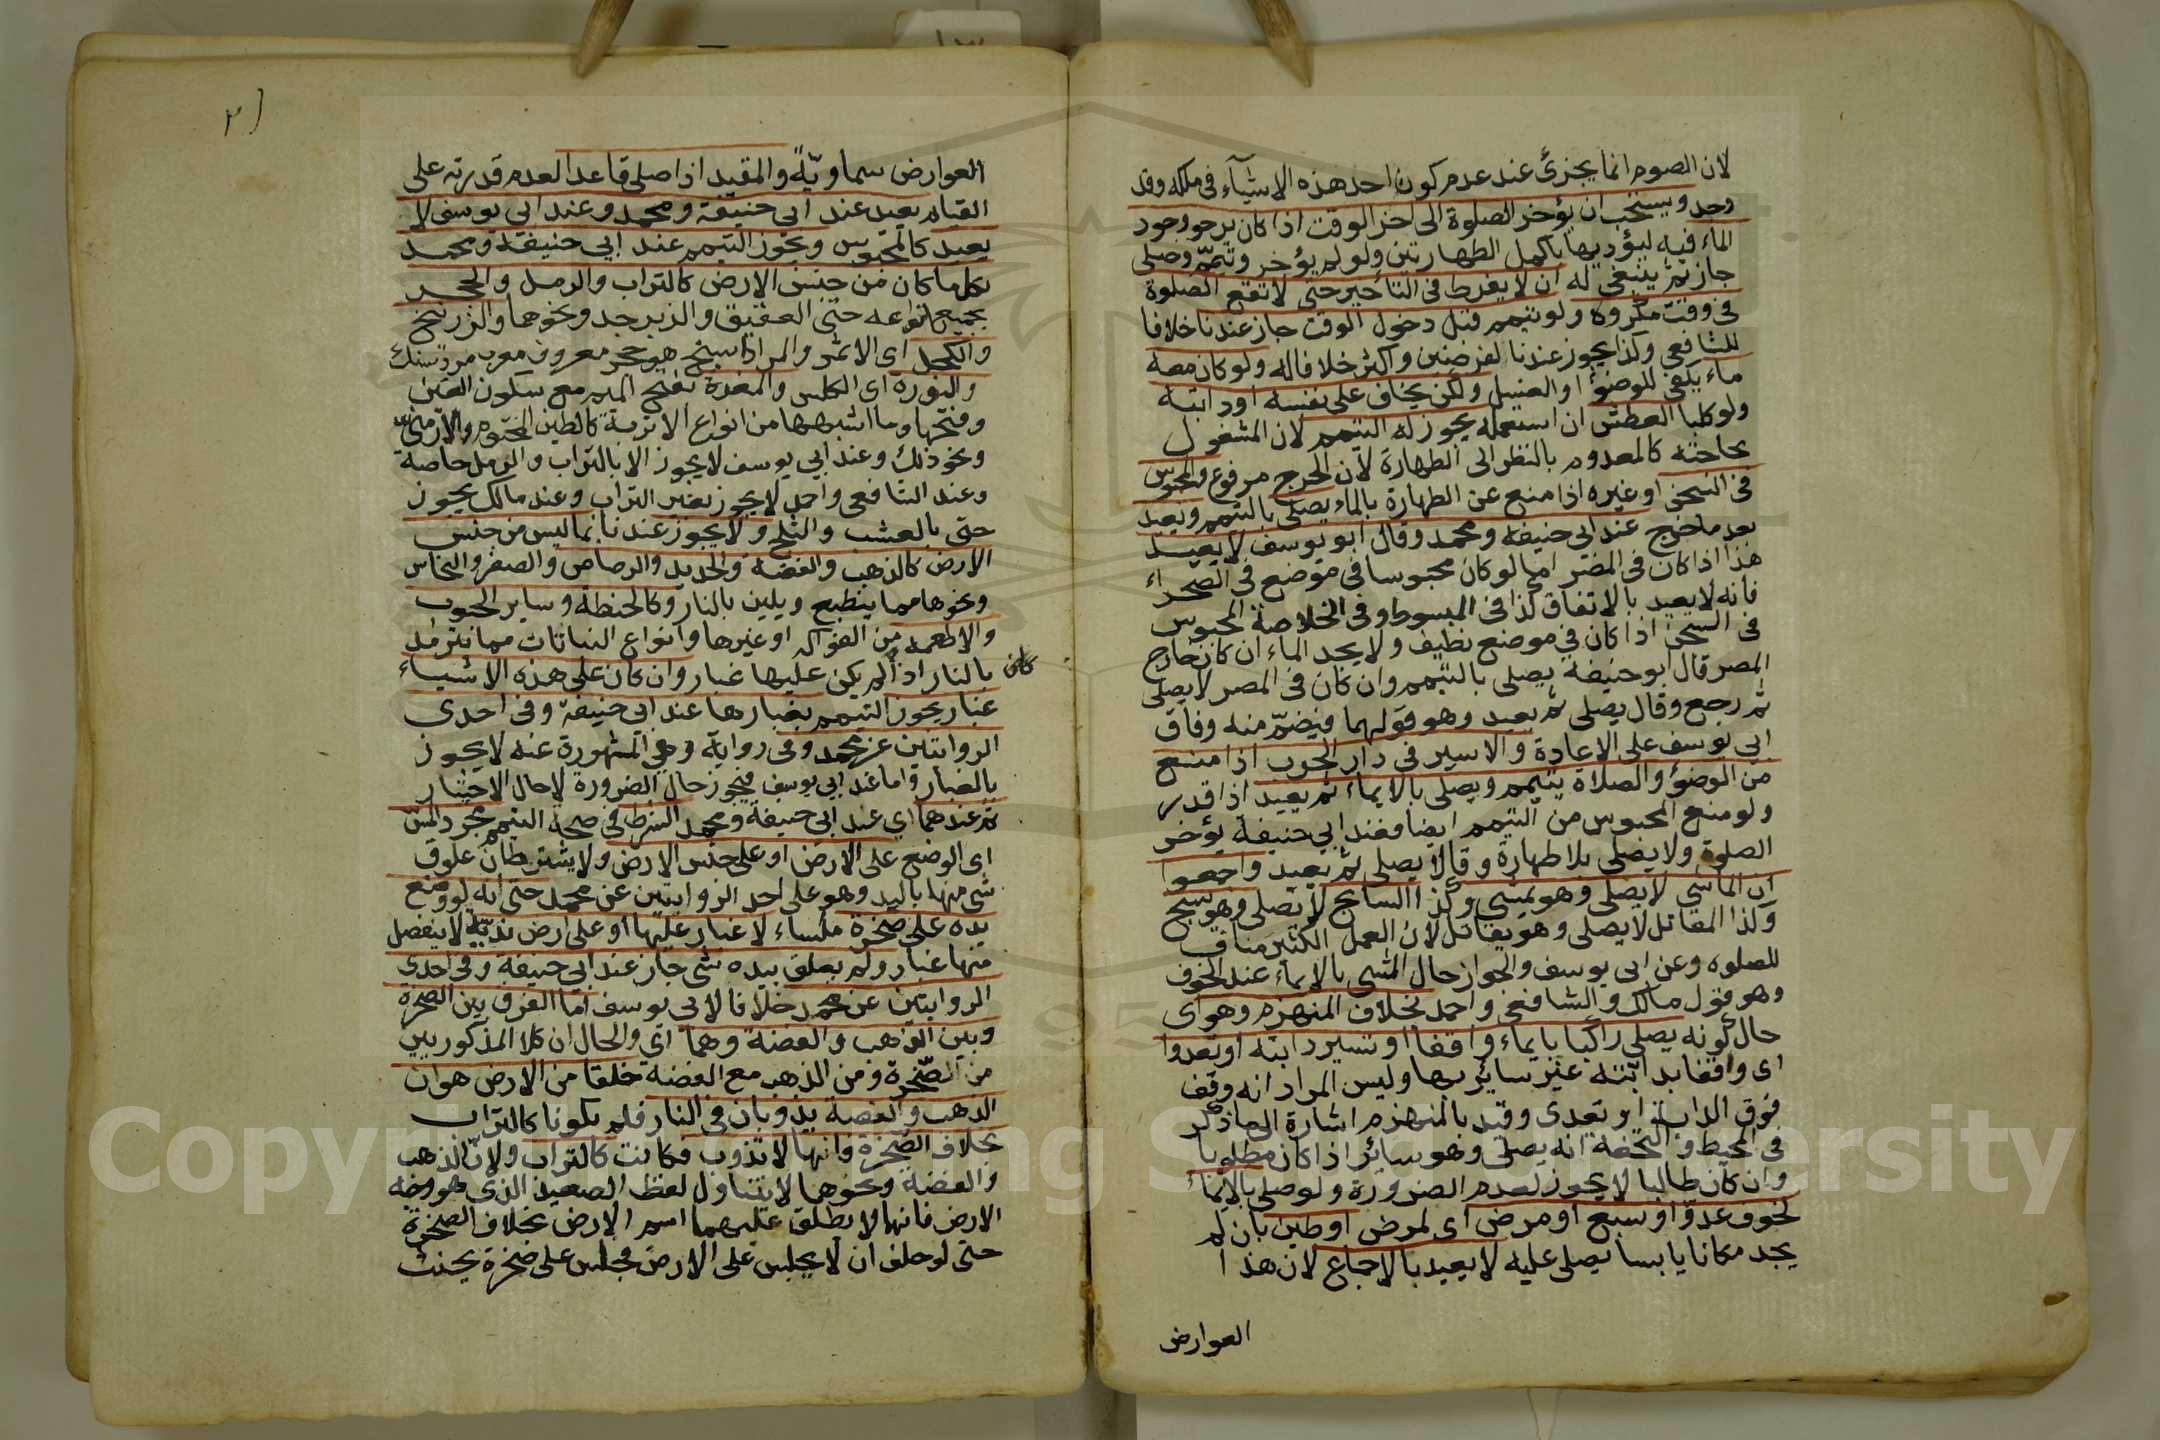 لان الصوم انما يجزئ عند عدم كون احد هذه الاشيآء فى ملكه وقد
وجد ويستحب ان يؤخر الصلوة الى اخر الوقت اذا كان يرجو وجود
الماء فيه ليؤديها باكمل الطهارتين ولو لم يؤخر وتيمّم وصلى
جاز ثم ينبغى له ان لا يفرط فى التأخير حتى لا تقع الصلوة
فى وقت مكروه ولو تيمم قبل دخول الوقت جاز عندنا خلافا
للشافعى وكذا يجوز عندنا لفرضين واكثر خلافا له ولو كان معه
ماء يكفى للوضوء او الغسل ولكن يخاف على نفسه او دابته
ولو كلبا العطش ان استعمله يجوز له التيمم لان المشغول
بحاجته كالمعدوم بالنظر الى الطهارة لأن الحرج مرفوع والمحبوس
فى السجن او غيره اذا منع عن الطهارة بالماء يصلى بالتيمم ويعيد
بعد ما خرج عند ابى حنيفة ومحمد وقال ابو يوسف لا يعيد
هذا اذا كان فى المصر اما لو كان محبوسا فى موضع فى الصحراء
فانه لا يعيد بالاتفاق كذا فى المبسوط وفى الخلاصة المحبوس
فى السجن اذا كان في موضع نظيف ولا يجد الماء ان كان خارج
المصر قال ابو حنيفة يصلى بالتيمم وان كان فى المصر لا يصلى
ثم رجع وقال يصلى ثم يعيد وهو قولهما
ابى يوسف على الاعادة والاسير فى دار الحرب اذا منع
من الوضوء والصلاة يتيمم ويصلى بالايماء ثم يعيد اذا قدر
ولو منع المحبوس من التيمم ايضا فعند ابي حنيفة يؤخر
الصلوة ولا يصلى بلا طهارة وقالا يصلى ثم يعيد واجمعوا
ان الماشى لا يصلى وهو يمشى وكذا السابح لا يصلى وهو يسبح
وكذا المقاتل لا يصلى وهو يقاتل لان العمل الكثير مناف
للصلوه وعن ابى يوسف والجواز حال المشى بالايماء عند الخوف
وهو قول مالك والشافعى واحمد بخلاف المنهزم وهو اى
حال كونه يصلى راكبا بايماء واقفا او تسير دابته او تعدوا
اى واقفا بدابته غير سائر بها وليس المراد انه وقف
فوق الدابة او تعدى وقيد بالمنهزم اشارة الى ما ذكر
فى المحيط والتحفة انه يصلى وهو سائر اذا كان مطلوبا
وان كان طالبا لا يجوز لعدم الضرورة ولو صلى بالايماء
لخوف عدو او سبع او مرض اى لمرض او طين بان لم
يجد مكانا يابسا يصلى عليه لا يعيد بالاجماع لان هذا
العوارض
العوارض سماويّة والمقيد اذا صلى قاعدا لعدم قدرته على
القيام يعيد عند ابي حنيفة ومحمد وعند ابى يوسف لا
يعيد كالمحبوس ويجوز التيمم عند ابي حنيفة ومحمد
بكل ما كان من جنس الارض كالتراب والرمل والحجر
بجميع انواعه حتى العقيق والزبرجد ونحوهما والزرنيخ
والكحل اى الاثمد والمرداسنج هو حجر معروف معرب مردسنك
والنورة اى الكلس والمغرة بفتح الميم مع سكون الغين
وفتحها وما اشبهها من انواع الاتربة كالطين المختوم والارمنى
ونحو ذلك وعند ابي يوسف لا يجوز الا بالتراب والرمل خاصة
وعند الشافعى واحمد لا يجوز بغير التراب وعند مالك يجوز
حتى بالعشب والثلج ولا يجوز عندنا بما ليس من جنس
الارض كالذهب والفضة والحديد والرصاص والصفر والنحاس
ونحوها مما ينطبع ويلين بالنار وكالحنطة وساير الحبوب
والاطعمة من الفواكه وغيرها وانواع النباتات مما يترمد
بالنار اذا لم يكن عليها غبار وان كان على هذه الاشياء
كان
غبار يجوز التيمم بغبارها عند ابى حنيفة وفى احدى
الروايتين عن محمد وفى رواية وهي المشهورة عنه لا يجوز
بالغبار واما عند ابي يوسف فيجوز حال الضرورة لا حال الاختيار
ثم عندهما اي عند ابى حنيفة ومحمد الشرط فى صحة التيمم مجرد المسّ
اى الوضع على الارض او على جنس الارض ولا يشترطان علوق
شى منها باليد وهو على احد الروايتين عن محمد حتى انه لو وضع
يده على صخرة ملساء لا غبار عليها او على ارض نديّة لا ينفصل
منها غبار ولم يعلق بيده شى جاز عند ابي حنيفة وفى احدى
الروايتين عن محمد خلافا لابى يوسف اما الفرق بين الصخرة
وبين الذهب والفضة وهما اى والحال ان كلا المذكورين
من الصّخرة ومن الذهب مع الفضه خلقا من الارض هو ان
الذهب والفضة يذوبان فى النار فلم يكونا كالتراب
بخلاف الصّخرة فانها لا تذوب فكانت كالتراب ولانّ الذهب
والفضة ونحوهما لا يتناول لفظ الصعيد الذى هو وجه
الارض فانها لا يطلق عليهما اسم الارض بخلاف الصخرة
حتى لو حلف ان لا يجلس على الارض فجلس على صخرة يحنث
Copyright © King Saud University